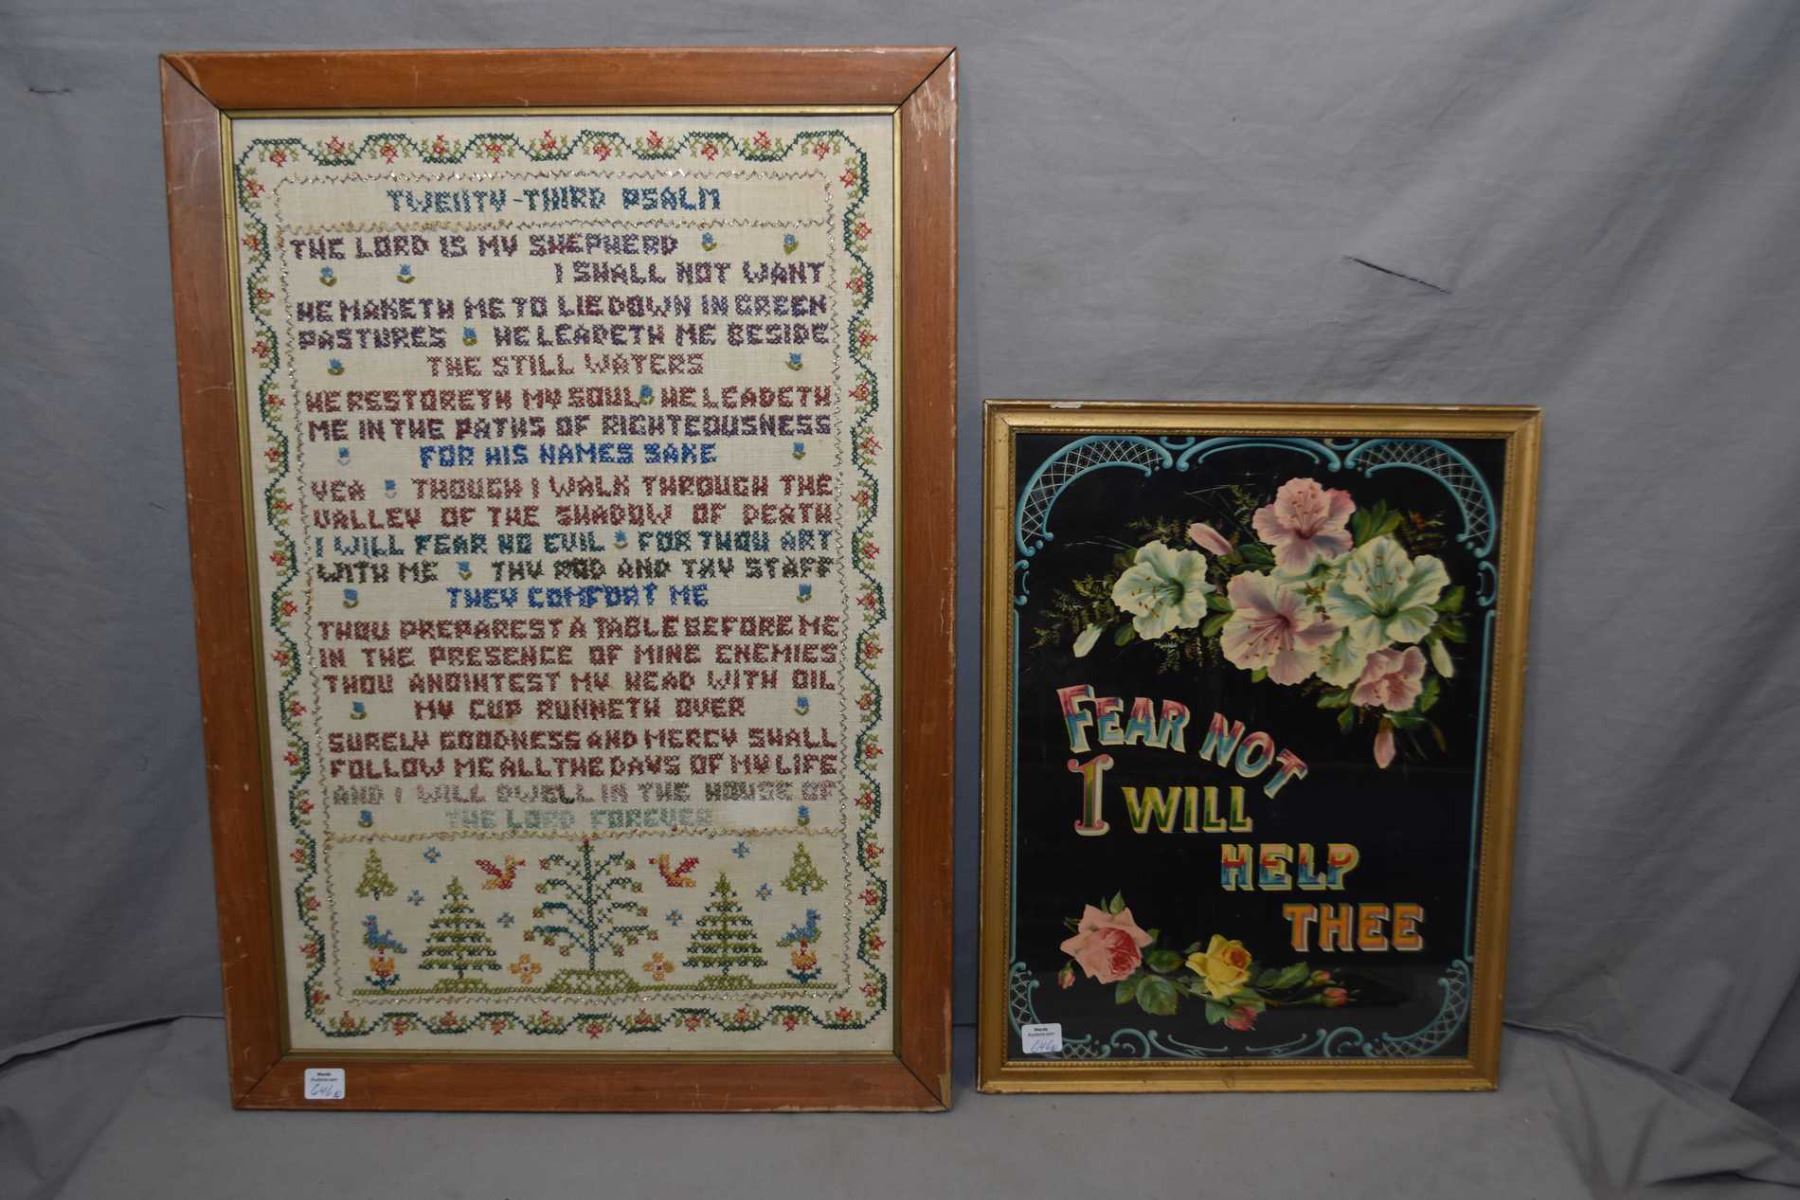 TWENTY-THIRD PSALM
THE LORD IS MY SHEPHERD
I SHALL NOT WANT
HE MAKETH ME TO LIE DOWN IN GREEN
PASTURES HE LEADETH ME BESIDE
THE STILL WATERS
HE RESTORETH MY SOUL HE LEADETH
ME IN THE PATHS OF RIGHTEOUSNESS
FOR HIS NAMES SAKE
YEA THOUGH I WALK THROUGH THE
VALLEY OF THE SHADOW OF DEATH
I WILL FEAR NO EVIL FOR THOU ART
WITH ME THY ROD AND THY STAFF
THEY COMFORT ME
THOU PREPAREST A TABLE BEFORE ME
IN THE PRESENCE OF MINE ENEMIES
THOU ANOINTEST MY HEAD WITH OIL
MY CUP RUNNETH OVER
SURELY GOODNESS AND MERCY SHALL
FOLLOW ME ALL THE DAYS OF MY LIFE
AND I WILL DWELL IN THE HOUSE OF
THE LORD FOREVER
FEAR NOT
I WILL
HELP
THEE